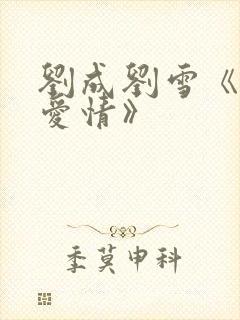 劉成劉雪《
愛情》
季莫申科